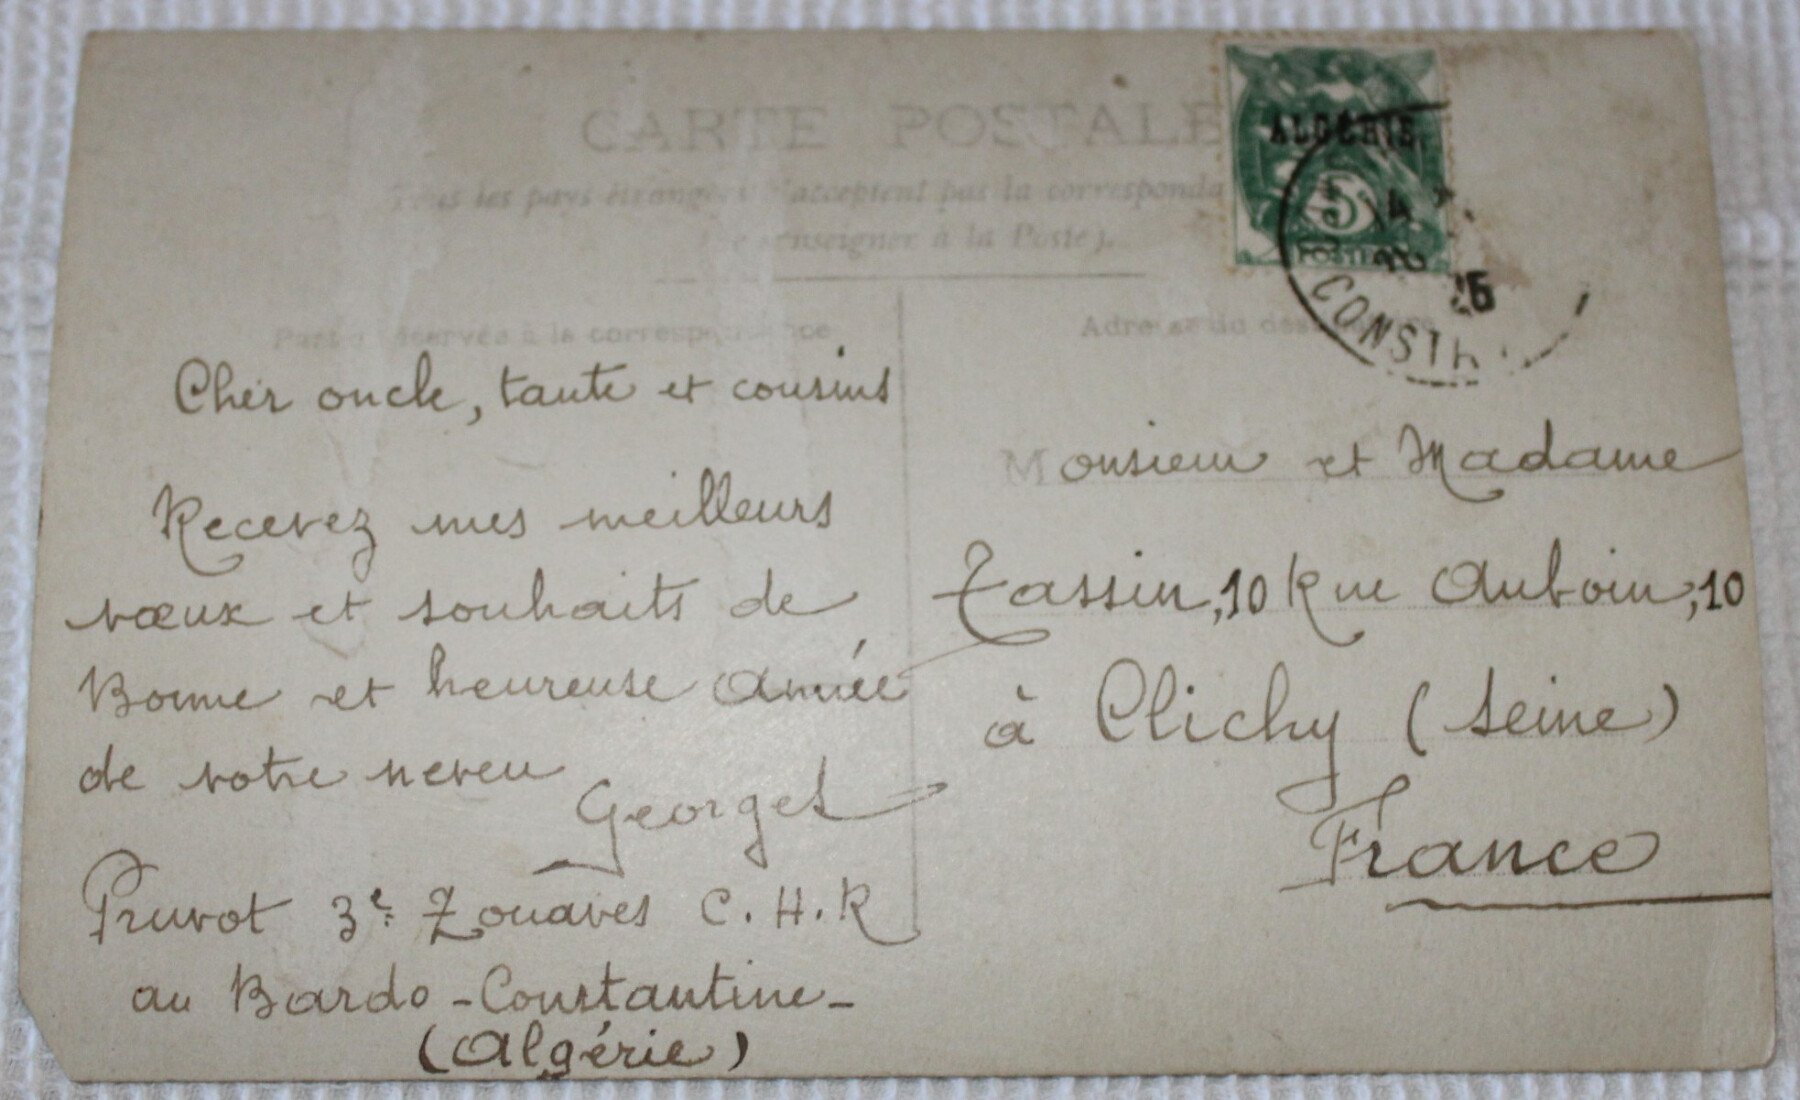 CARTE POSTALE
Tous les pays étrangers n'acceptent pas la corresponda
(Se renseigner à la Poste).
Partie réservée à la correspondance
Adresse du destinataire
ALGÉRIE
5
POSTE
CONST
Cher oncle, tante et cousins
Recevez mes meilleurs
vœux et souhaits de
Bonne et heureuse Année
de votre neveu
Georges
Pruvot 3e Zouaves C.H.R
au Bardo - Constantine -
(Algérie)
Monsieur et Madame
Tassin, 10 Rue Auboin, 10
à Clichy (Seine)
France